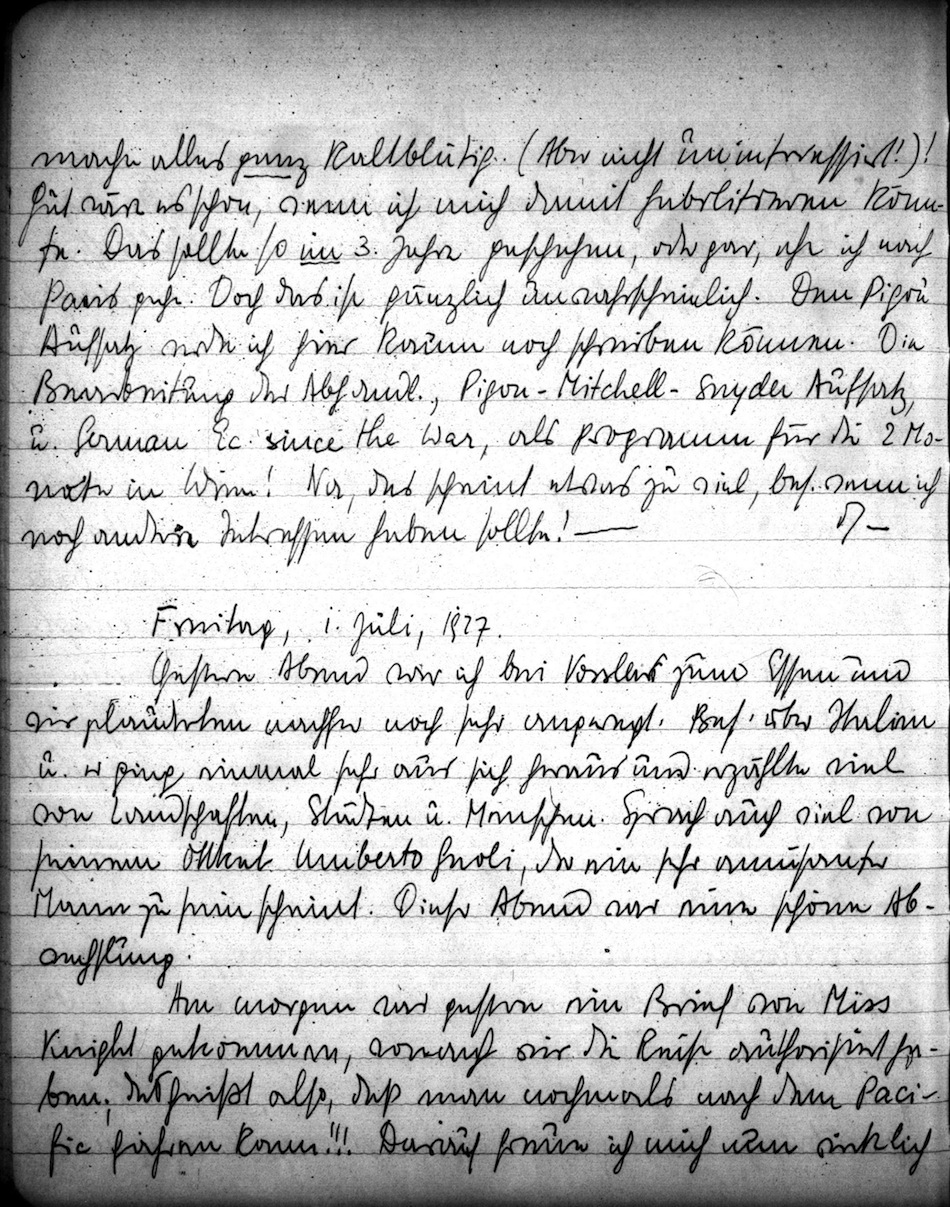 mache alles ganz kaltblütig. (Aber nicht uninteressiert!)!
Gut wäre es schon, wenn ich mich damit habilitieren könn-
te. Das sollte so im 3. Jahre geschehen, oder gar, ehe ich nach
Paris gehe. Doch das ist gänzlich unwahrscheinlich. Den Pigou
Aufsatz werde ich hier kaum noch schreiben können. Die
Bearbeitung der Abhandl., Pigou-Mitchell-Snyder Aufsatz,
u. German Ec. since the War, als Programm für die 2 Mo-
nate in Wien! Na, das scheint etwas zu viel, bes. wenn ich
noch andere Interessen haben sollte! —
Freitag, 1. Juli, 1927.
Gestern Abend war ich bei Vosslers zum Essen und
wir plauderten nachher noch sehr angeregt. Bes. über Italien
u. er ging einmal sehr aus sich heraus und erzählte viel
von Landschaften, Städten u. Menschen. Sprach auch viel von
seinem Onkel Umberto Gnoli, der ein sehr amüsanter
Mann zu sein scheint. Dieser Abend war eine schöne Ab-
wechslung.
Am morgen war gestern ein Brief von Miss
Knight gekommen, wonach wir die Reise authorisiert ha-
ben; das heißt also, daß man nochmals nach dem Paci-
fic fahren kann!!! Darauf freue ich mich nun wirklich